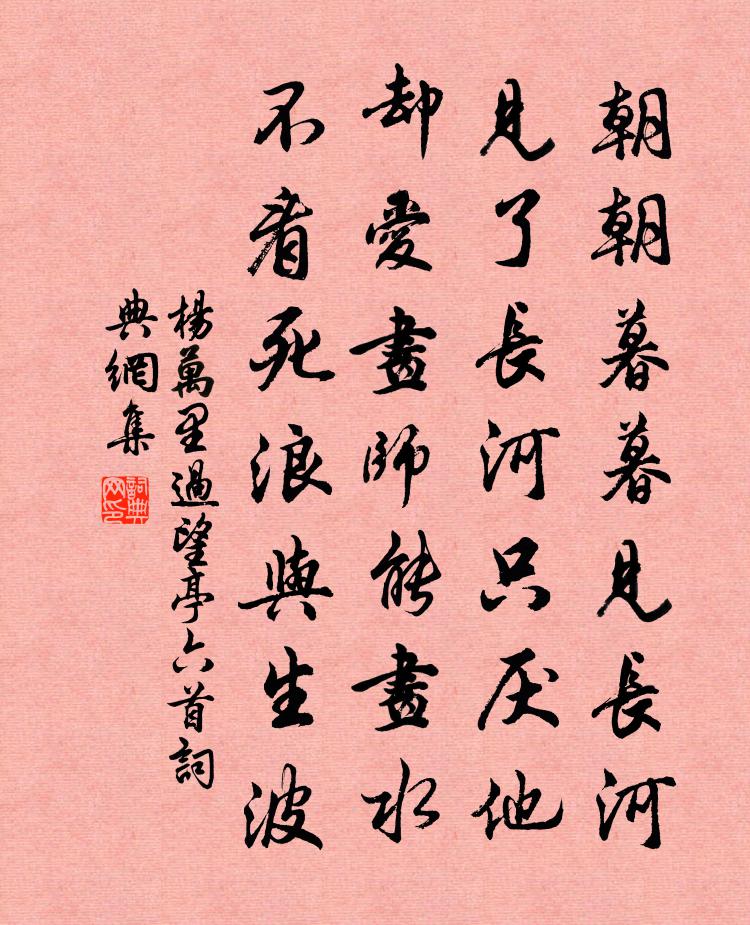 朝朝暮暮見長河
見了長河只厌他
却愛畫師能畫水
不看死浪與生波
楊萬里過望亭六首詞
典網集
詞典网印